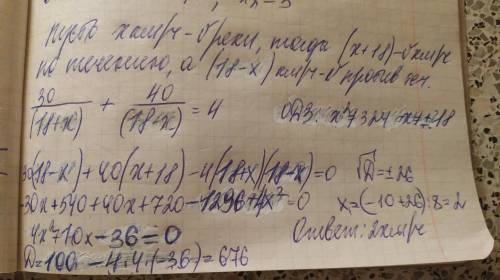 Пусть x км/ч - υ реки, тогда (x+18) - υ км/ч
по течению, а (18-x) км/ч - υ против теч.
30/(18+x) + 40/(18+x) = 4 ОДЗ: x²≠324 x≠±18
30(18-x)+40(x+18)-4(18+x)(18-x)=0 √D=±26
-30x+540+40x+720-1296+4x²=0 x=(-10+26):8=2
4x²+10x-36=0 Ответ: 2км/ч
D=100-4·4·(-36)=676